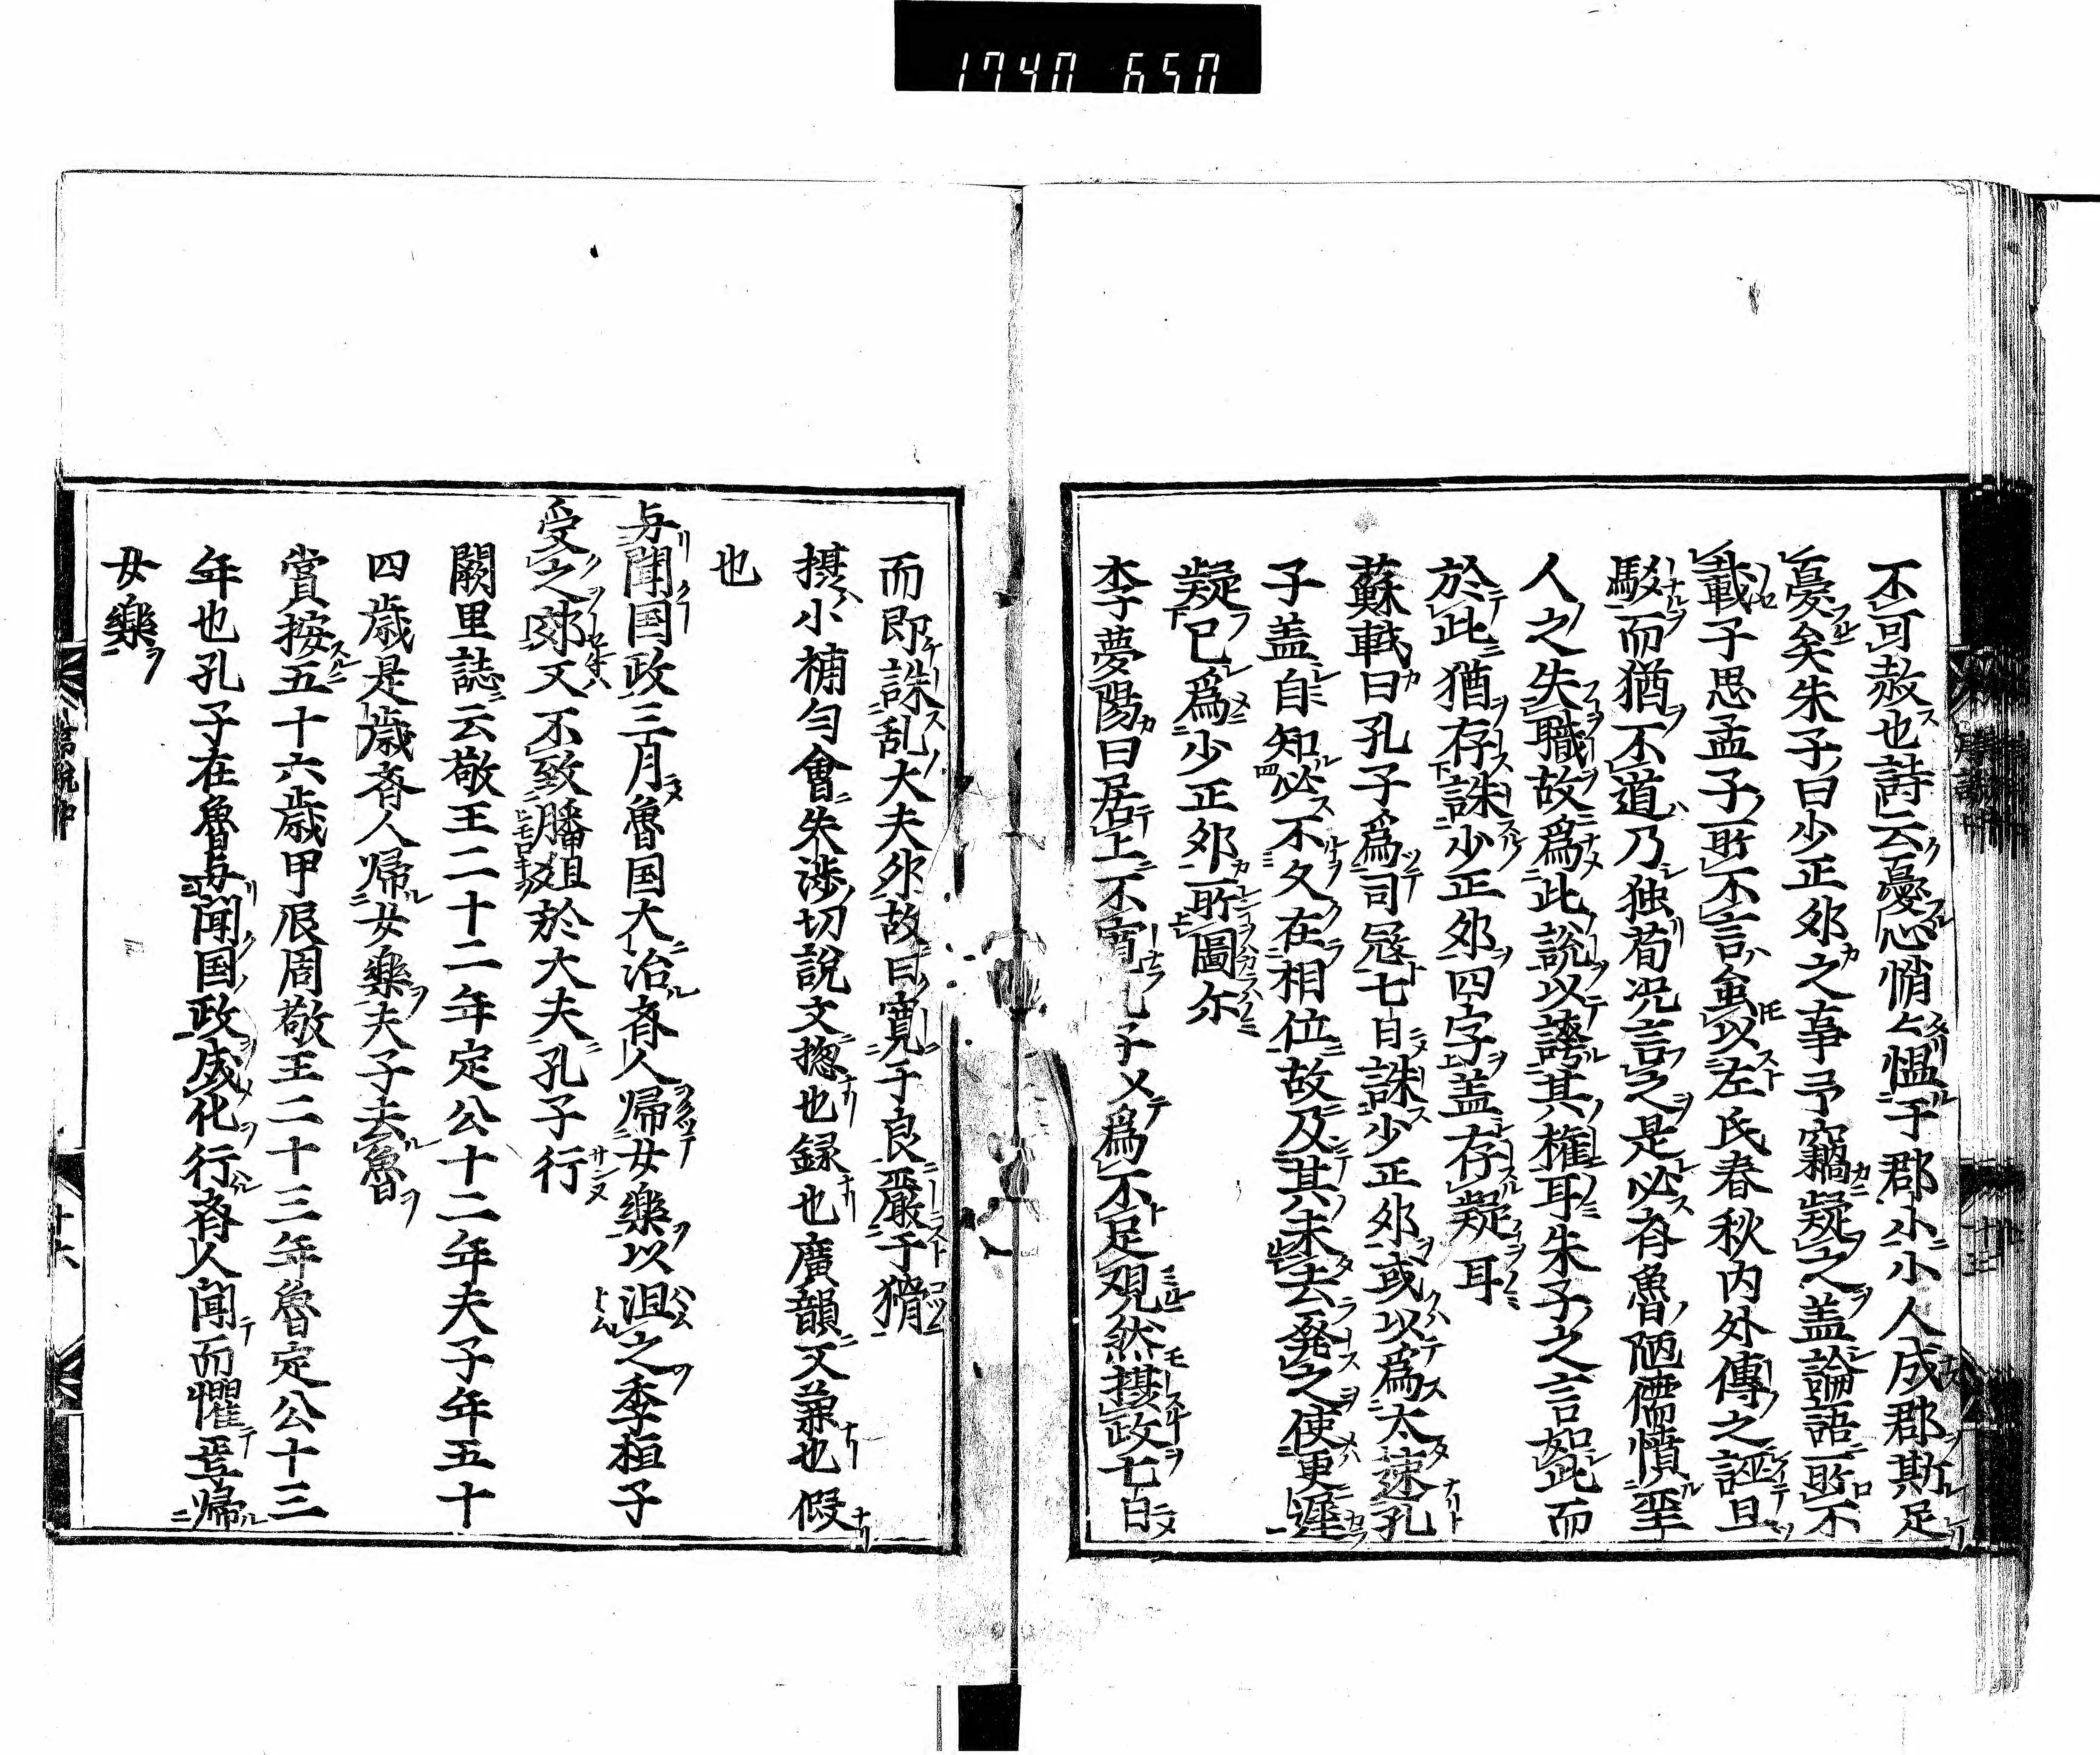 1740 650
不可赦也詩云憂心悄々慍于群小小人成群斯足
憂矣朱子曰少正卯之事予竊疑之盖論語所不
載子思孟子所不言虽以左氏春秋内外傳之誣且
駁而猶不道乃独荀况言之是必斉魯陋儒憤聖
人之失職故爲此說以誇其権耳朱子之言如此而
於此猶存誅少正卯四字盖存疑耳
蘇軾曰孔子爲司冦七日誅少正卯或以爲太速孔
子盖自知必不久在相位故及其未去発之使更遅
疑已爲少正卯所圖尓
李夢陽曰居上不寬孔子乂爲不足観然摂政七日
而即誅乱大夫卯故曰寛于良嚴于猾
摂小補勻會失渉切説文摠也録也廣韻又兼也假
也
与聞国政三月魯国大治斉人帰女樂以沮之季桓子
受之郊又不致膰俎於大夫孔子行
闕里誌云敬王二十二年定公十二年夫子年五十
四歳是歳斉人帰女樂夫子去魯
嘗按五十六歳甲辰周敬王二十三年魯定公十三
年也孔子在魯与聞国政成化行斉人聞而懼焉帰
女樂